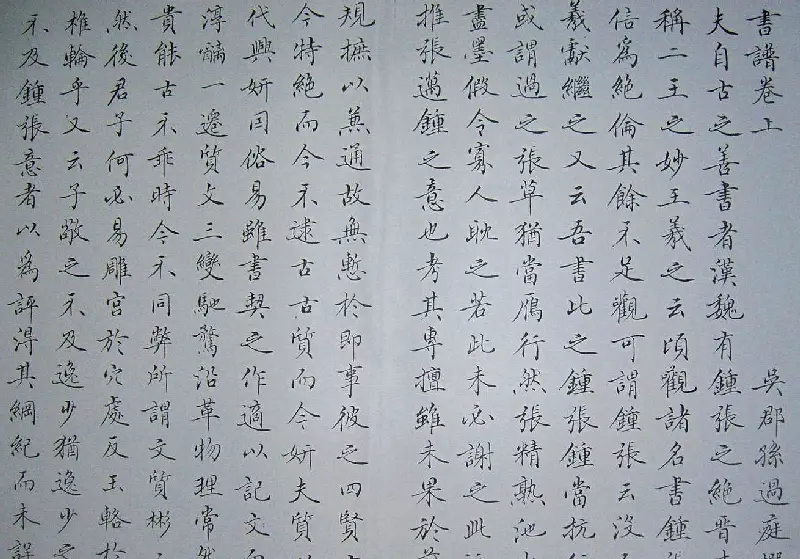 書譜卷上 吳郡孫過庭撰
夫自古之善書者漢魏有鍾張之絕晉末
稱二王之妙王羲之云頃觀諸名書鍾張
信為絕倫其餘不足觀可謂鍾張云沒
羲獻繼之又云吾書比之鍾張鍾當抗行
或謂過之張草猶當鴈行然張精熟池水
盡墨假令寡人耽之若此未必謝之此
推張邁鍾之意也考其專擅雖未果於前
規摭以兼通故無慙於即事彼之四賢古
今特絕而今不逮古古質而今妍夫質以
代興妍因俗易雖書契之作適以記文而
淳醨一遷質文三變馳騖沿革物理常然
貴能古不乖時今不同弊所謂文質彬彬
然後君子何必易雕宮於穴處反玉輅於
椎輪乎又云子敬之不及逸少猶逸少之
不及鍾張意者以為評得其綱紀而未詳